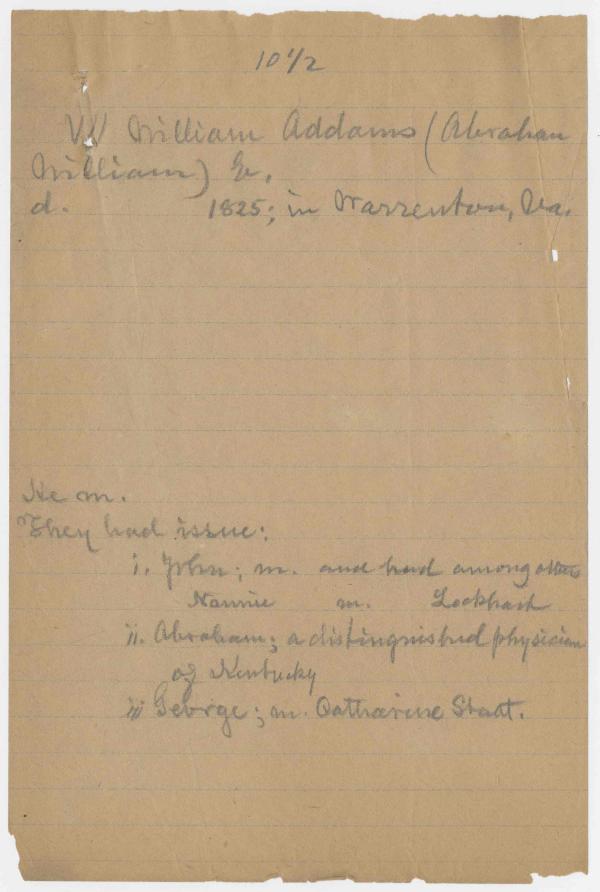 10 1/2
William Addams (Abraham
William)
d. 1825; in Warrenton, Va.
He m.
They had issue:
i. John; m. and had among others
Nannie m. Lockhart
ii. Abraham; a distinguished physician
of Kentucky
iii George; m. Catharine Staat.